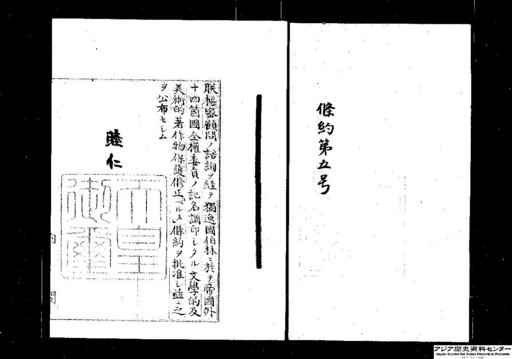 條約第五号
朕樞密顧問ノ諮詢ヲ経テ獨逸國伯林ニ於テ帝國外
十四箇國全權委員ノ記名調印シタル文學的及
美術的著作物保護修正ベルヌ條約ヲ批准シ茲ニ之
ヲ公布セシム
睦仁
天皇御璽
内閣
アジア歴史資料センター
Japan Center for Asian Historical Records